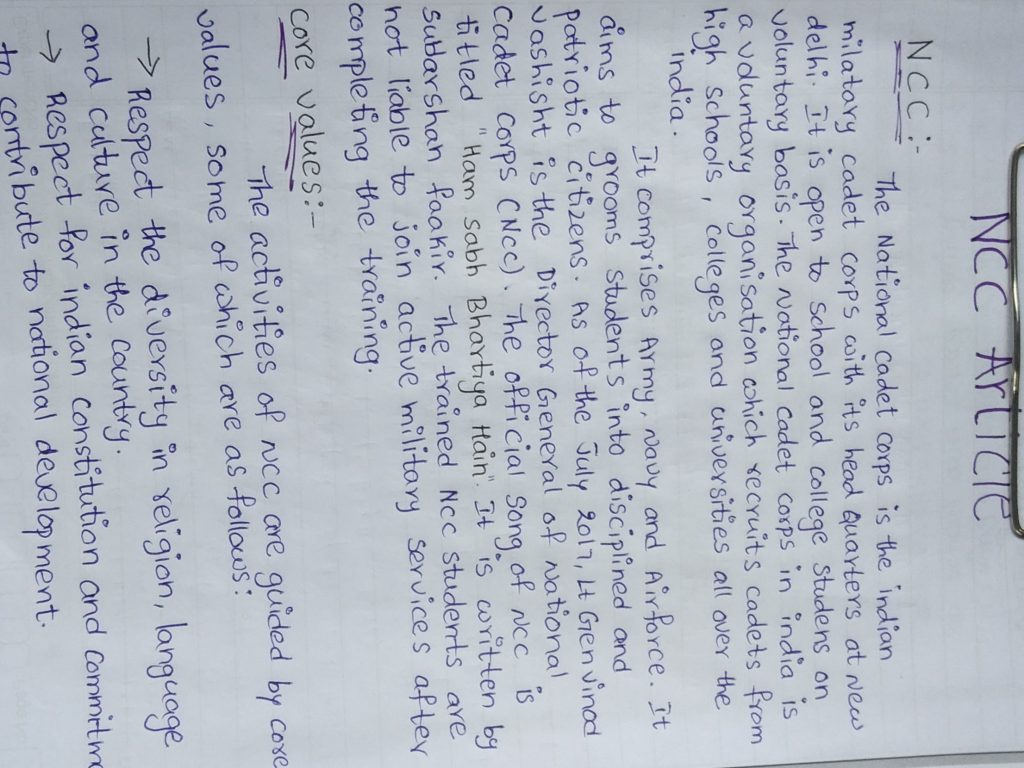 NCC Article
NCC:-
The National cadet corps is the indian
militatary cadet corps with its head quarters at New
delhi. It is open to school and college studens on
voluntary basis. The National cadet corps in india is
a voluntary organisation which recruits cadets from
high schools, colleges and universities all over the
india.
It comprises Army, navy and Airforce. It
aims to grooms students into disciplined and
patriotic citizens. As of the July 2017, Lt Gen vinod
vashisht is the Director General of National
cadet corps (NCC). The official song of NCC is
titled "Ham sabh Bhartiya Hain". It is written by
sudarshan faakir. The trained NCC students are
not liable to join active military services after
completing the training.
core values:-
The activities of NCC are guided by core
values, some of which are as follows:
→ Respect the diversity in religion, language
and culture in the country.
→ Respect for indian constitution and commitme
to contribute to national development.